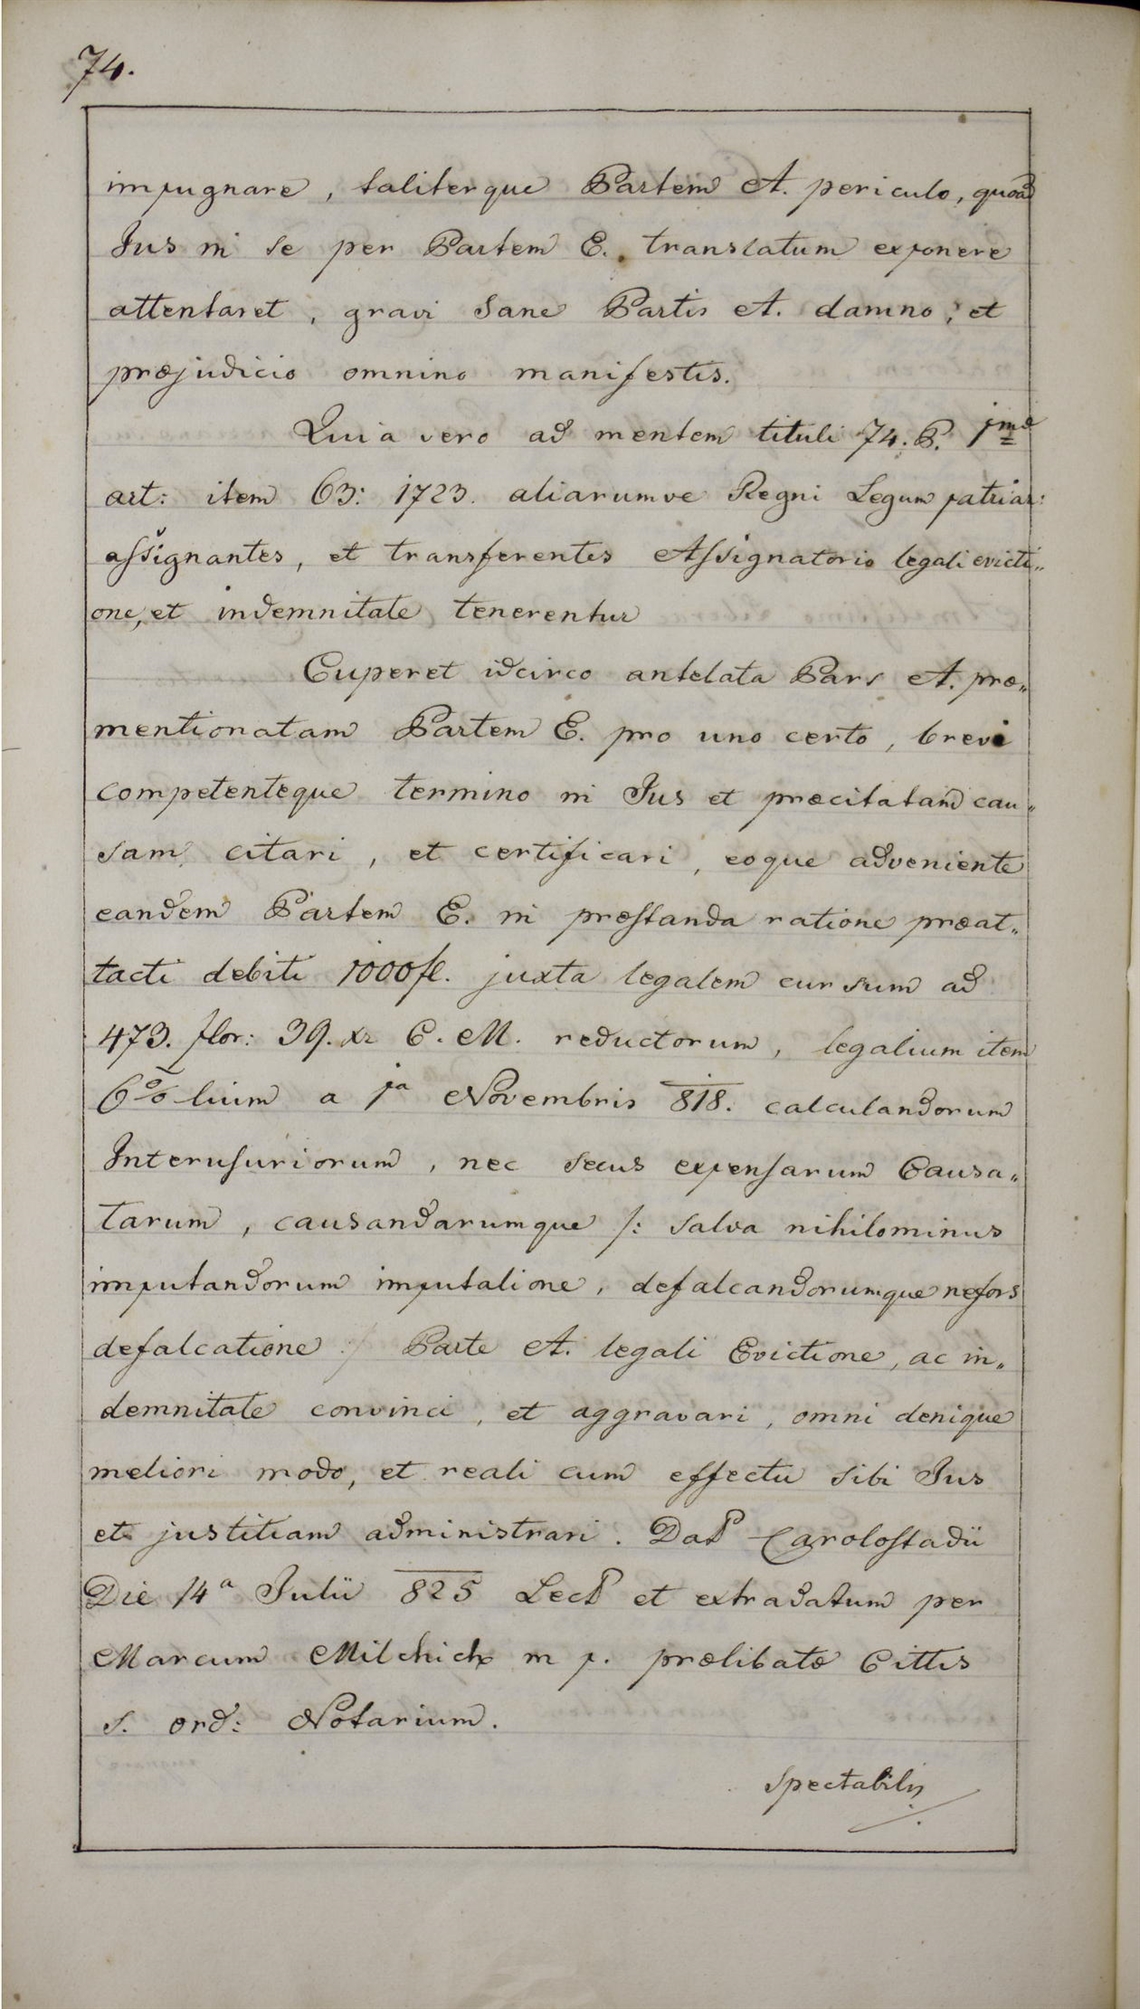 74.
impugnare, taliterque Partem A. periculo, quoad
Jus in se per Partem E. translatum exponere
attentaret, gravi sane Partis A. damno, et
præjudicio omnino manifestis.
Quia vero ad mentem tituli 74. P. 1mæ
art: item 63: 1723. aliarumve Regni Legum patriar:
assignantes, et transferentes Assignatorio legali evicti„
one, et indemnitate tenerentur
Cuperet idcirco antelata Pars A. præ„
mentionatam Partem E. pro uno certo, brevi
competenteque termino in Jus et præcitatam cau„
sam citari, et certificari, eoque adveniente
eandem Partem E. in præstanda ratione præat„
tacti debiti 1000 fl. juxta legalem cursum ad
473. flor: 39. xr C. M. reductorum, legalium item
6% lium a 1a Novembris 818. calculandorum
Interusuriorum, nec secus expensarum Causa„
tarum, causandarumque /: salva nihilominus
imputandorum imputatione, defalcandorumque nefors
defalcatione :/ Parte A. legali Evictione, ac in„
demnitate convinci, et aggravari, omni denique
meliori modo, et reali cum effectu sibi Jus
et justitiam administrari. Dat Carolostadii
Die 14a Julii 825 Lect et extradatum per
Marcum Milchich m p. prælibatæ Cittis
s. ord: Notarium.
Spectabilis